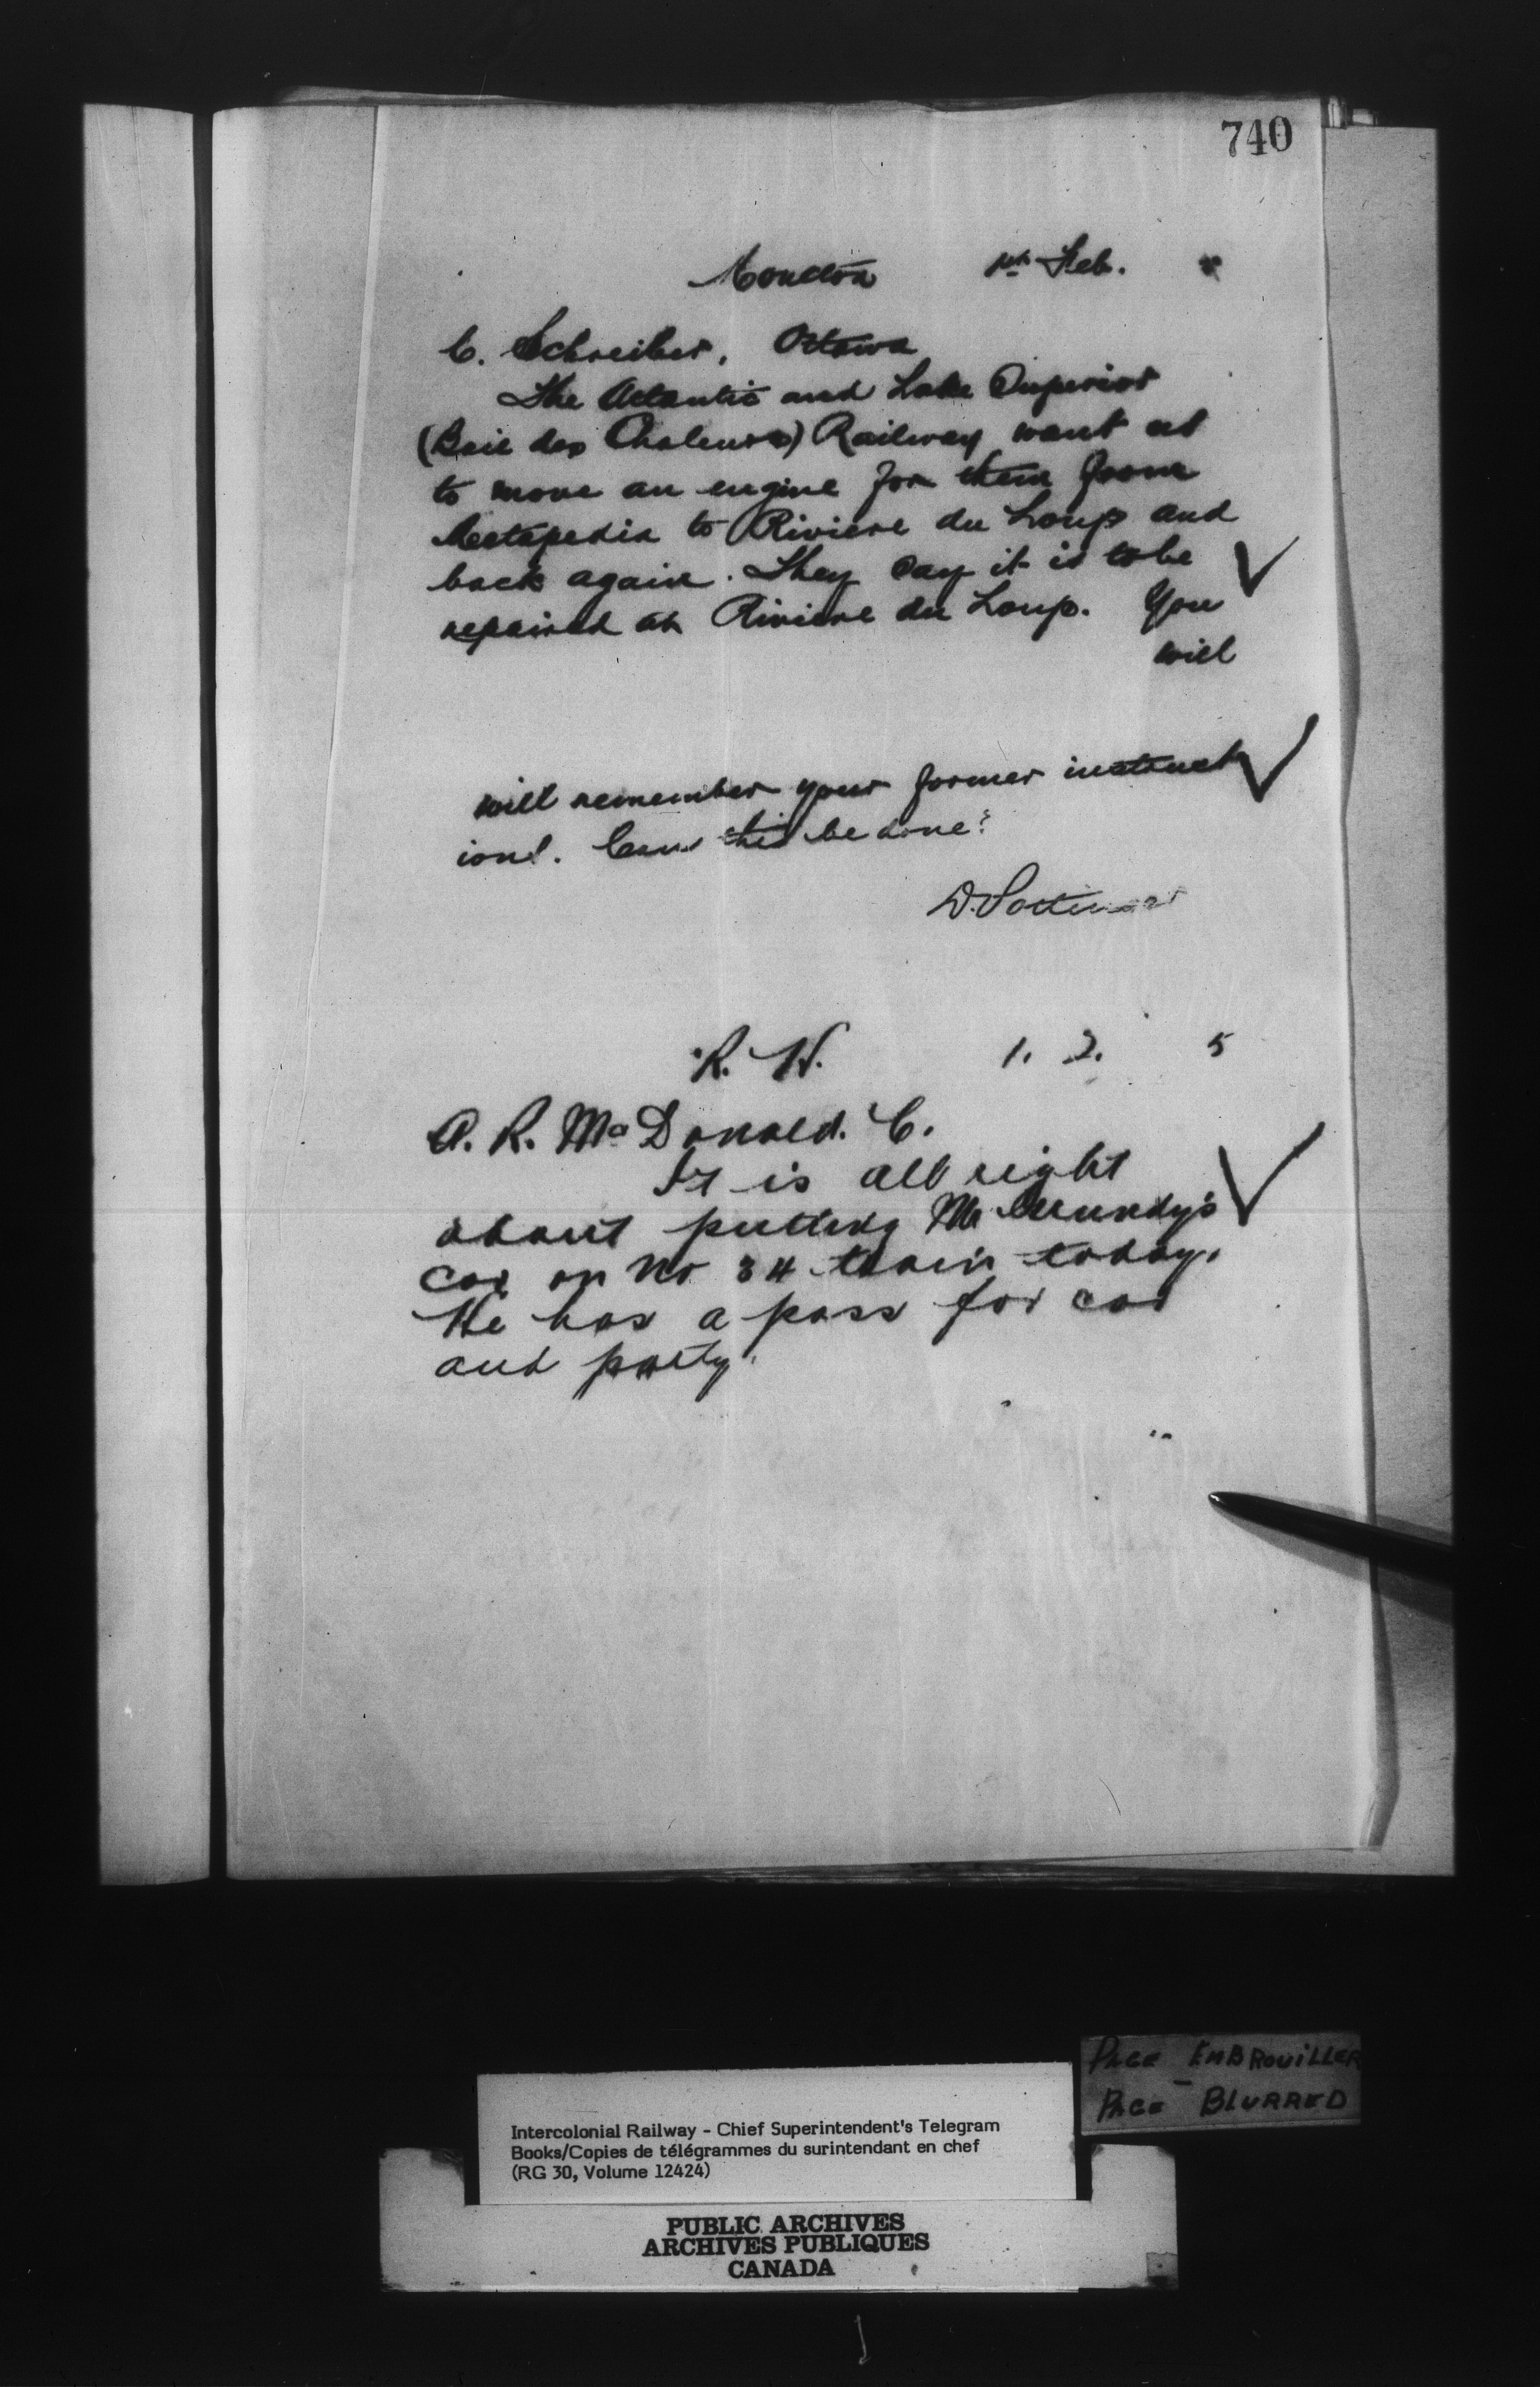 740
Moncton 1st Feb.
C. Schreiber, Ottawa
The Atlantic and Lake Superior
(Baie des Chaleurs) Railway want us
to move an engine for them from
Metapedia to Riviere du Loup and
back again. They say it is to be
repaired at Riviere du Loup. You
will
will remember your former instruct
ions. Can this be done?
D. Pottinger
R. W. 1. 2. 5
A. R. McDonald. C.
It is all right
about putting Mr Mundy's
car on No 34 train today.
He has a pass for car
and party.
PAGE EMBROUILLER
PAGE - BLURRED
Intercolonial Railway - Chief Superintendent's Telegram
Books/Copies de télégrammes du surintendant en chef
(RG 30, Volume 12424)
PUBLIC ARCHIVES
ARCHIVES PUBLIQUES
CANADA